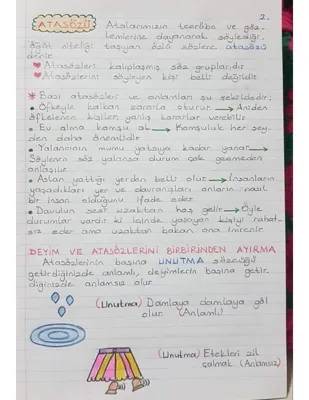 2.
ATASÖZÜ Atalarımızın tecrübe ve göz-
lemlerine dayanarak söylediği,
öğüt niteliği taşıyan özlü sözlere atasözü
denir.
Atasözleri kalıplaşmış söz gruplarıdır
Atasözlerini söyleyen kişi belli değildir
* Bazı atasözleri ve anlamları şu şekildedir;
• Öfkeyle kalkan zararla oturur → Aniden
öfkelenen kişiler, yanlış kararlar verebilir
• Ev alma komşu al → Komşuluk her şey-
den daha önemlidir
• Yalancının mumu yatsıya kadar yanar →
Söylenen söz yalansa durum çok geçmeden
anlaşılır
• Aslan yattığı yerden belli olur → İnsanların
yaşadıkları yer ve davranışları, onların nasıl
bir insan olduğunu ifade eder
• Davulun sesi uzaktan hoş gelir → Öyle
durumlar vardır ki içinde yaşayan kişiyi rahat-
sız eder ama uzaktan bakan ona imrenir
DEYİM VE ATASÖZLERİNİ BİRBİRİNDEN AYIRMA
Atasözlerinin başına UNUTMA sözcüğü
getirdiğinizde anlamlı, deyimlerin başına getir-
diğinizde anlamsız olur
(Unutma) Damlaya damlaya göl
olur (Anlamlı)
(Unutma) Etekleri zil
çalmak (Anlamsız)